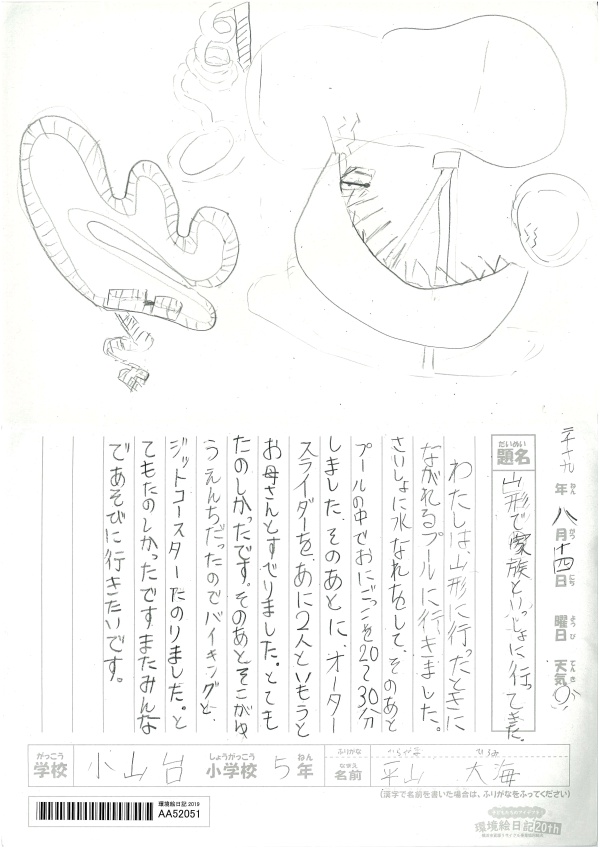 二千十九年八月十四日 曜日 天気
ねん がつ にち ようび てんき
だいめい
題名 山形で家族といっしょに行ってきた。
わたしは、山形に行ったときに
ながれるプールに行きました。
さいしょに水なれをして、そのあと
プールの中でおにごっこを20~30分
しました。そのあとに、オーター
スライダーを、あに2人といもうと
お母さんとすべりました。とても
たのしかったです。そのあとそこがゆ
うえんちだったのでバイキングと、
ジットコースターたのりました。と
てもたのしかったですまたみんな
であそびに行きたいです。
がっこう しょうがっこう ねん ふりがな ひらやま ひろみ
学校 小山台 小学校 5年 なまえ 名前 平山 大海
(漢字で名前を書いた場合は、ふりがなをふってください)
環境絵日記 2019
AA52051
環境絵日記 20th